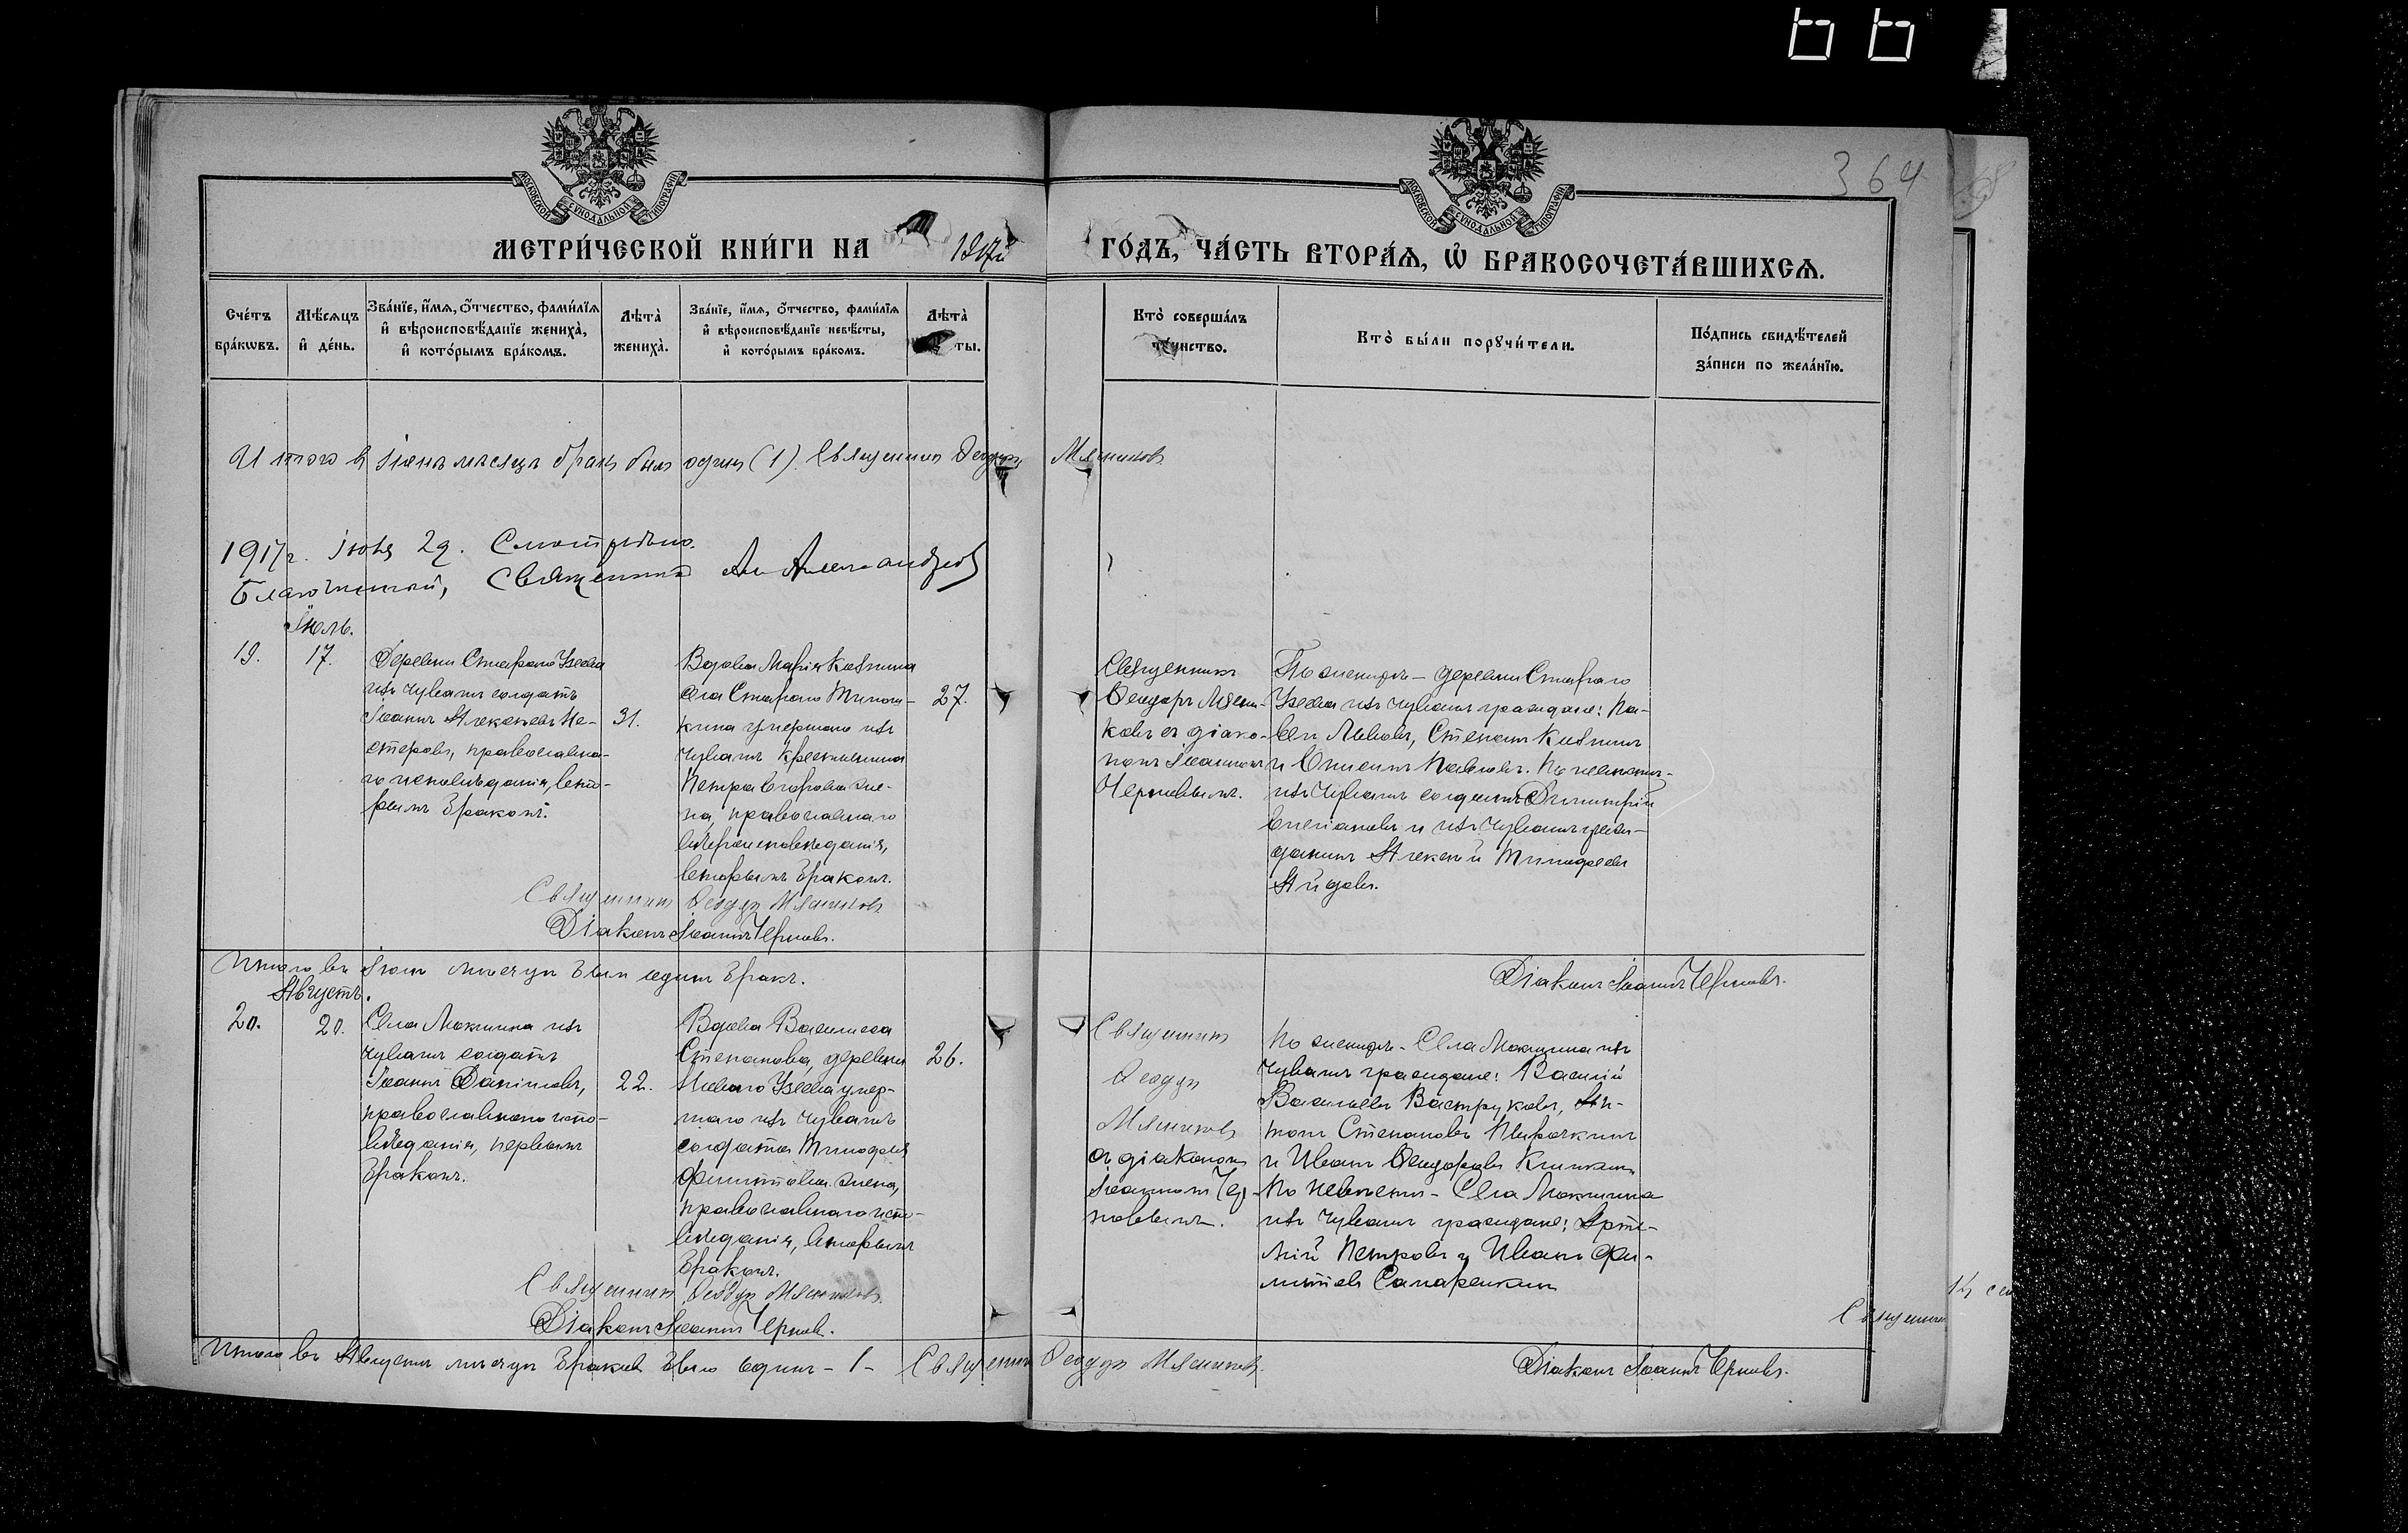 364
МОСКОВСКОЙ СѴНОДАЛЬНОЙ ТИПОГРАФІИ
МОСКОВСКОЙ СѴНОДАЛЬНОЙ ТИПОГРАФІИ
МЕТРИ́ЧЕСКОЙ КНИ́ГИ НА 1917й ГО́ДЪ, ЧА́СТЬ ВТОРА́Ѧ, Ѽ БРАКОСОЧЕТА́ВШИХСѦ.
Сче́тъ бра́кѡвъ.
Мѣ́сѧцъ и҆ де́нь.
Зва́нїе, и҆́мѧ, ѻ҆́тчество, фами́лїѧ
и҆ вѣроисповѣ́данїе жениха̀,
и҆ кото́рымъ бра́комъ.
Лѣта̀ жениха̀.
Зва́нїе, и҆́мѧ, ѻ҆́тчество, фами́лїѧ
и҆ вѣроисповѣ́данїе невѣ́сты,
и҆ кото́рымъ бра́комъ.
Лѣта̀ ты.
Кто̀ соверша́лъ
та́инство.
Кто̀ бы́ли порꙋчи́тели.
По́дпись свидѣ́телей
за́писи по жела́нїю.
Итого в іюнь мѣсяцъ бракъ был один (1). Священник Ѳеодоръ Мясников
1917 г. Іюня 29. Смотрѣно.
Благочинный, Священникъ Ал Александров
Іюль.
19.
17.
Деревни Стараго Узеева
изъ чувашъ солдатъ
Іоаннъ Алексѣевъ Не-
стеровъ, православна-
го исповѣданія, вто-
рымъ бракомъ.
31.
Вдова Марія Козмина
села Стараго Тимош-
кина умершаго изъ
чувашъ крестьянина
Петра Егорова же-
на, православнаго
вѣроисповѣданія,
вторымъ бракомъ.
27.
Священникъ
Ѳеодоръ Мясни-
ковъ съ діако-
номъ Іоанномъ
Черновымъ.
По женихѣ – деревни Стараго
Узеева изъ чувашъ граждане: Па-
велъ Львовъ, Степанъ Козминъ
и Павловъ. По невѣстѣ-
изъ чувашъ солдатъ Димитрій
и изъ чувашъ граж-
данинъ Алексѣй Тимофеевъ
Айдовъ.
Священникъ Ѳеодоръ Мясников
Діаконъ Іоаннъ Черновъ.
Итого въ Іюлѣ мѣсяцѣ былъ единъ бракъ.
Діаконъ Іоаннъ Черновъ.
Августъ.
20.
20.
Села Мокшина изъ
чувашъ солдатъ
Іоаннъ Даніиловъ,
православнаго испо-
вѣданія, первымъ
бракомъ.
22.
Вдова Василиса
Степанова, деревни
Новаго Узеева умер-
шаго изъ чувашъ
солдата Тимофея
Филиппова жена,
православнаго испо-
вѣданія, вторымъ
бракомъ.
26.
Священникъ
Ѳеодоръ
Мясников
съ діакономъ
Іоанномъ Чер-
новымъ.
По женихѣ - Села Мокшина изъ
чувашъ граждане: Василій
Васильевъ Востряковъ, Ан-
тонъ Степановъ
и Иванъ Ѳеодоровъ
По невѣстѣ - Села Мокшина
изъ чувашъ граждане: Арте-
мій Петровъ и Иванъ Фи-
липповъ
Священникъ Ѳеодоръ Мясников.
Діаконъ Іоаннъ Чернов.
Итого въ Августѣ мѣсяцѣ браковъ было одинъ – 1 – Священник Ѳеодоръ Мясников.
Діаконъ Іоаннъ Черновъ.